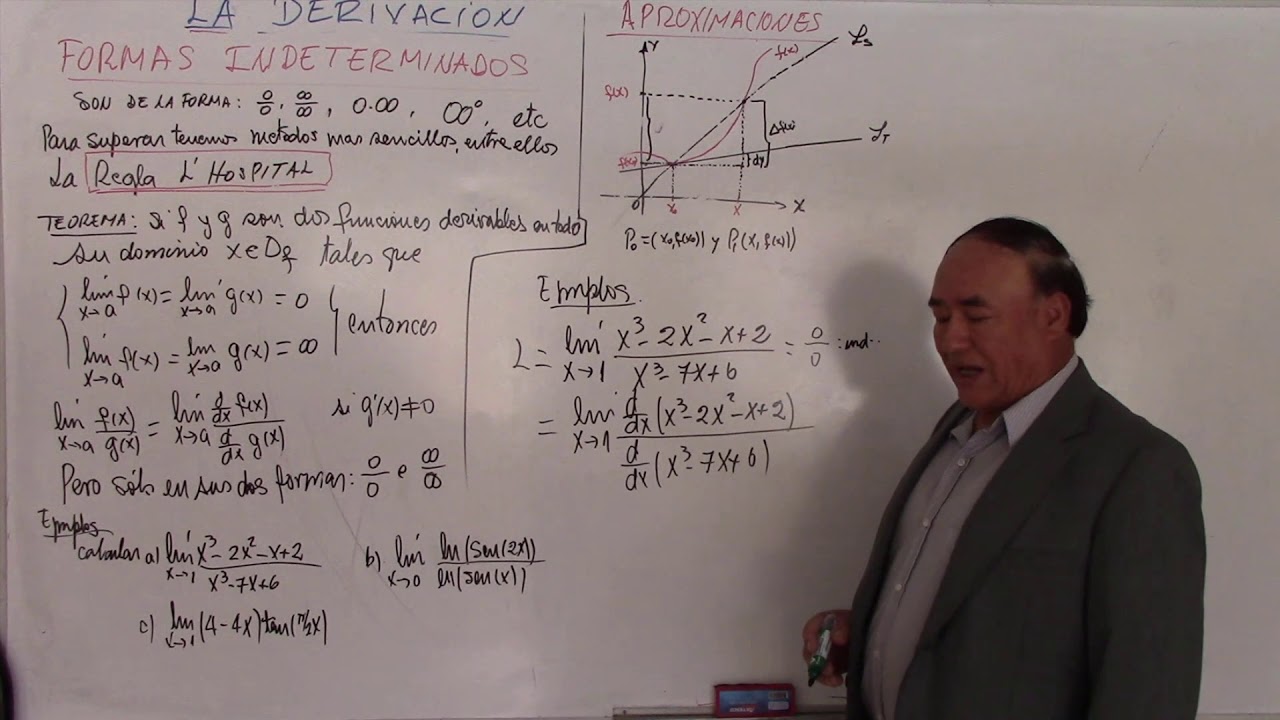 LA DERIVACION
FORMAS INDETERMINADOS
SON DE LA FORMA: 0/0, ∞/∞, 0·∞, ∞°, etc
Para superar tenemos metodos mas sencillos, entre ellos
La Regla L'HOSPITAL
TEOREMA: Si f y g son dos funciones derivables en todo
su dominio x∈Df tales que
lím x→a f(x) = lím x→a g(x) = 0
lím x→a f(x) = lím x→a g(x) = ∞
entonces
lím x→a f(x)/g(x) = lím x→a d/dx f(x) / d/dx g(x) si g'(x)≠0
Pero sólo en sus dos formas: 0/0 e ∞/∞
Ejmplos
calcular a) lím x→1 x³-2x²-x+2 / x³-7x+6 b) lím x→0 ln(sen(2x)) / ln(sen(x))
c) lím x→1 (4-4x)tan(π/2x)
APROXIMACIONES
Y
f(x)
Ls
f(x)
Δf(x)
LT
f(x₀)
dy
0
x₀
x
X
P₀=(x₀,f(x₀)) y P₁(x,f(x))
Ejmplos.
L = lím x→1 x³-2x²-x+2 / x³-7x+6 = 0/0 : ind..
= lím x→1 d/dx (x³-2x²-x+2) / d/dx (x³-7x+6)